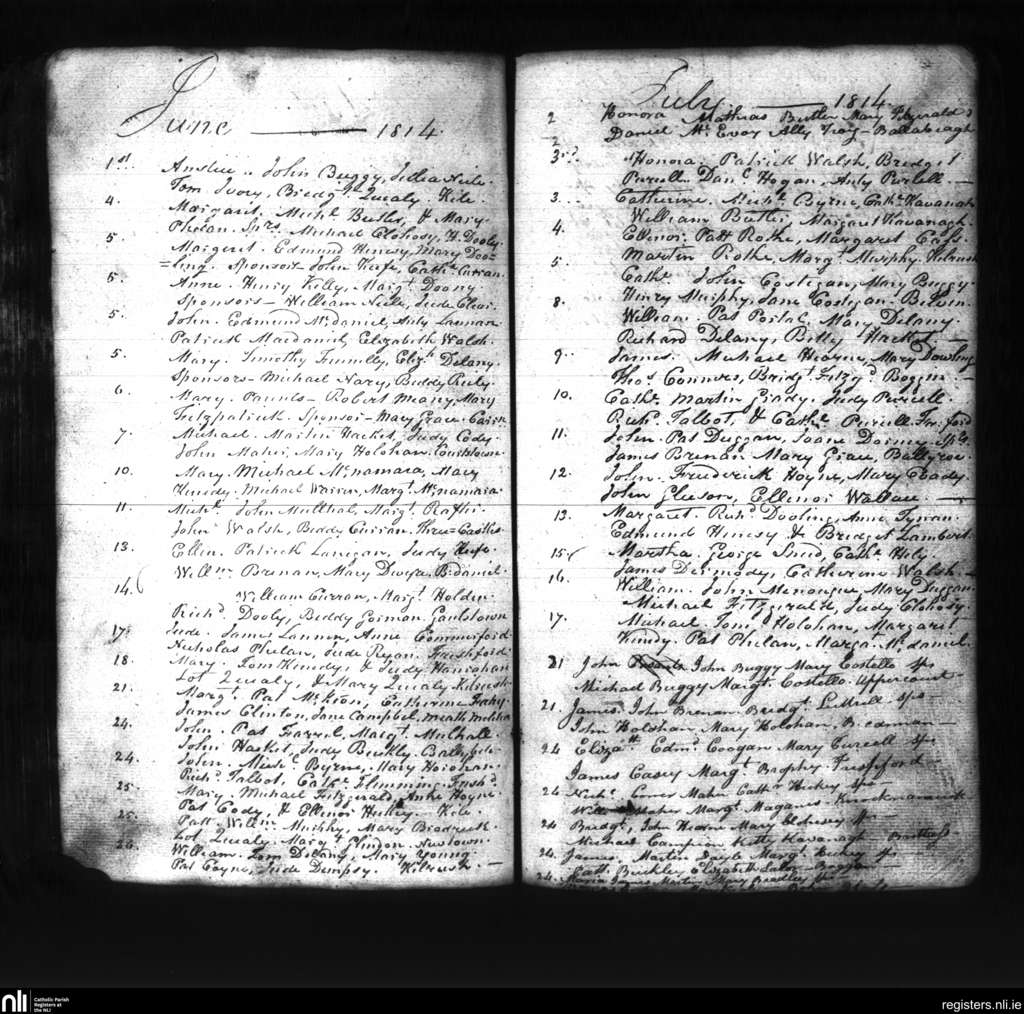 June — 1814
1st. John Buggy, Julia Neile.
Tom Ivory, Bridgt Quealy. Kile.
4. Margaret. Michl Butler, & Mary
Phelan. Sprs. Michael Clohosy, H. Dooly.
5. Margeret. Edmund Henesy, Mary Doo=
=ling. Sponsors John Keefe, Cathe. Curran.
5. Anne. Henry Kelly, Margt. Doony
Sponsors – William Neile, Jude Clear.
5. John. Edmund McDaniel, Anty Lannan
Patrick Macdaniel, Elizabeth Walsh.
5. Mary. Timothy Elizth Delany.
Sponsors – Michael Nary, Biddy Reily.
6. Mary. Parents – Robert Meany, Mary
Fitzpatrick. Sponsor – Mary Grace.
7. Michael. Martin Hacket, Judy Cody.
John Maher, Mary Holohan. Coushtown.
10. Mary. Michael McNamara, Mary
Kenedy. Michael Warren, Margt. McNamara
11. Michl. John Mullhal, Margt. Rafter.
John Walsh, Biddy Curran. Three=Castles.
13. Ellen. Patrick Lanegan, Judy Keefe.
Willm Brenan, Mary Dwyer. B:daniel.
14. William Curran, Margt. Holden.
Richd. Dooly, Biddy Gorman. Gaulstown
17. Jude. James Lannon, Anne Commerford.
Nicholas Phelan, Jude Ryan. Freshford.
18. Mary. Tom Kenedy, & Judy Hanrahan
Lot Quealy, & Mary Quealy
21. Margt. Pat McKeon, Catherine Feehy.
James Clinton, Jane Campbel, Meath
24. John. Pat Farrel, Margt. Mulhall.
John Hasket, Judy Buckly. Ballybele.
24. John. Michl Byrne, Mary Horohan.
Richd. Talbot, Cathe Flimming. Fresh'd.
25. Mary. Michael Fitzgerald, Anne Hoyne.
Pat Cody, & Ellenor Hickey. Kile.
25. Patt. Willm Murphy, Mary Brodrick.
Lot Quealy. Mary Clinton. Newtown.
26. William. Tom Delany, Mary Young
Pat Coyne, Jude Dempsy. Kilrush. —
July — 1814.
2 Honora Mathias Butler Mary Fitzgerald
Daniel McEvoy Ally Ballabeagh
3rd. Honora. Patrick Walsh, Bridget
Purcell. Danl. Hogan, Anty Purcell.
3. Catherine. Michl. Byrne, Cathe. Kavanah
William Butler, Margaret Kavanagh.
4. Ellenor. Patt Rothe, Margaret Cass.
Martin Rothe, Margt. Murphy. Kilrush
5. Cathe. John Costigan, Mary Buggy.
Henry Murphy, Jane Costigan.
8. William. Pat Postal, Mary Delany.
Richard Delany, Betty Hacket —
9. James. Michael Hoyne, Mary Dowling
Thos. Connors, Bridgt. Fitzg'd
10. Cathe. Martin Grady. Judy Purcell.
Richd. Talbot, & Cathe Purcell. Fresh'ford
11. John. Pat Duggan, Joane Sprs.
James Brenan. Mary Grace, Ballyroe.
12. John. Frederick Hoyne, Mary Coady.
John Gleeson, Ellenor Wallace. —
13. Margaret. Richd. Dooling, Anne Tynan.
Edmund Henesy & Bridget Lambert.
15. Martha. George Sned, Cathe. Hely.
James Dermody, Catherine Walsh. —
16. William. John Menongue, Mary Duggan
Michael Fitzgerald, Judy Clohosy.
17. Michael. Tom Holohan, Margaret
Kenedy. Pat Phelan, Margt. McDaniel.
21 John John Buggy Mary Costello sps
Michael Buggy Margt. Costello. Uppercourt —
21. James. John Brenan Bridgt. sps —
John Holohan Mary Holohan.
24 Elizath Edmd. Coogan Mary Purcell sps
James Casey Margt. Brophy. Freshford
24 Nichs. Maher Cathr Hickey sps
Maher Margt. Maganis.
24 Bridgt. John Hoarne Mary Clohesey sps
Michael Campion Kitty Kavanagh
24. James. Martin Doyle Margt. Hickey sps
Catt. Buckley Elizabeth
24. Maria James Martin Mary Bradley sps
nli
Catholic Parish
Registers at
the NLI
registers.nli.ie